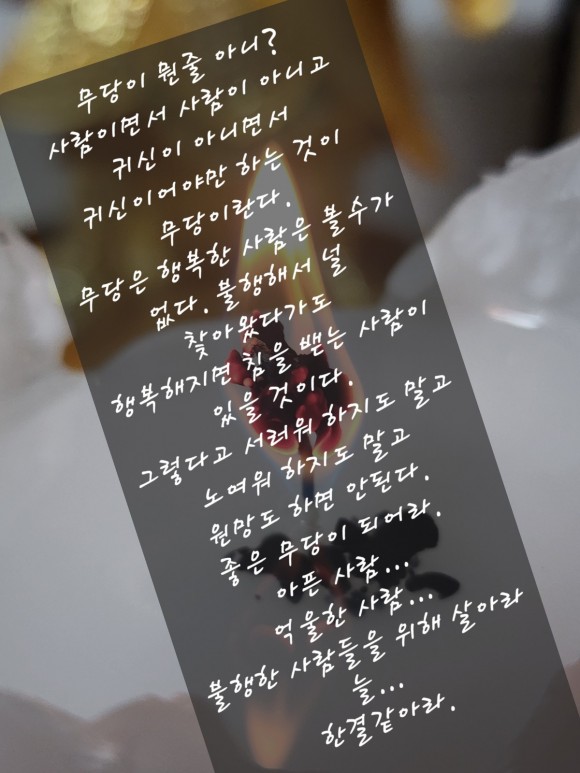 무당이 뭔줄 아니?
사람이면서 사람이 아니고
귀신이 아니면서
귀신이어야만 하는 것이
무당이란다.
무당은 행복한 사람은 볼수가
없다. 불행해서 널
찾아왔다가도
행복해지면 침을 뱉는 사람이
있을 것이다.
그렇다고 서러워 하지도 말고
노여워 하지도 말고
원망도 하면 안된다.
좋은 무당이 되어라.
아픈 사람...
억울한 사람...
불행한 사람들을 위해 살아라
늘...
한결같아라.